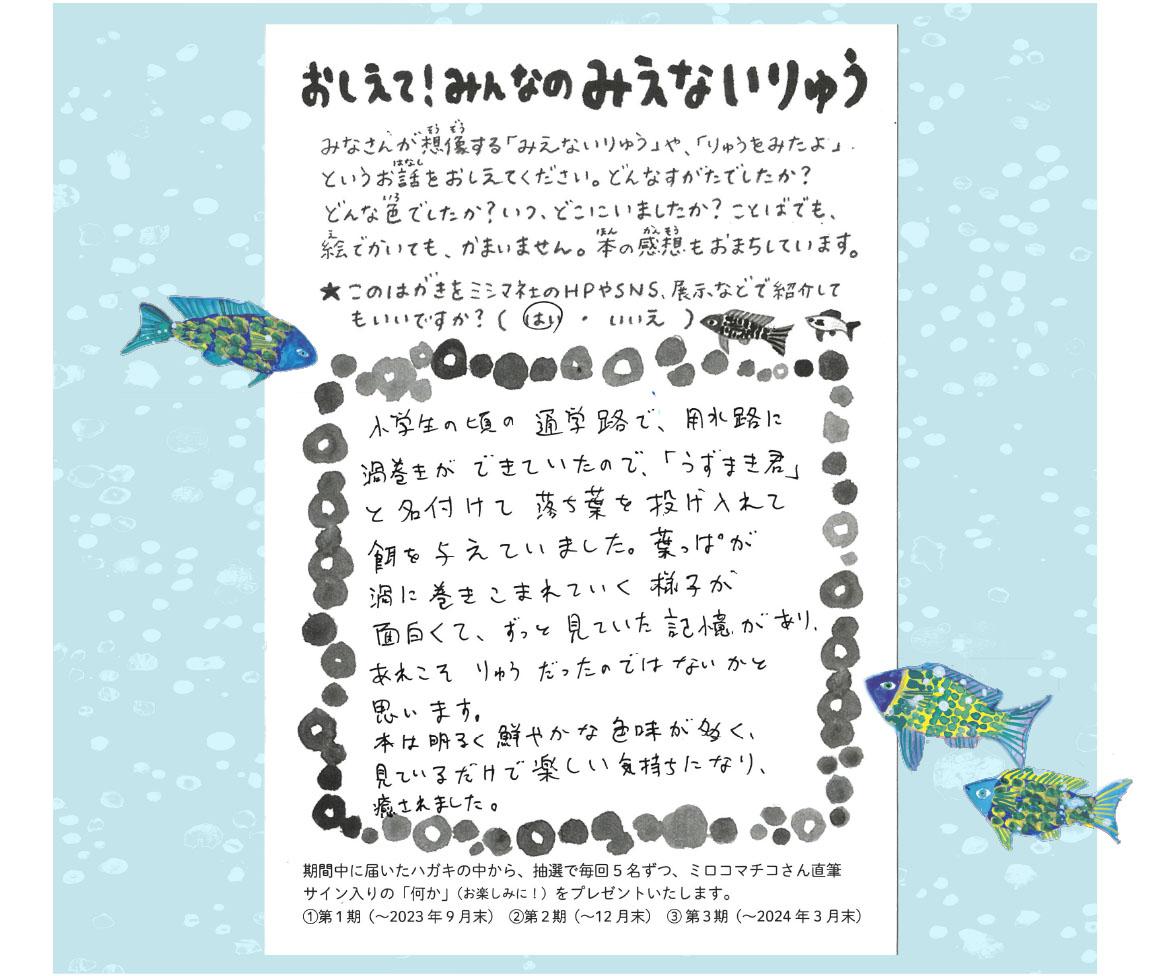 おしえて！みんなのみえないりゅう
みなさんが想像する「みえないりゅう」や、「りゅうをみたよ」
というお話をおしえてください。どんなすがたでしたか？
どんな色でしたか？いつ、どこにいましたか？ことばでも、
絵でかいても、かまいません。本の感想もおまちしています。
★このはがきをミシマ社のHPやSNS、展示などで紹介して
もいいですか？（ はい ・ いいえ ）
小学生の頃の通学路で、用水路に
渦巻きができていたので、「うずまき君」
と名付けて落ち葉を投げ入れて
餌を与えていました。葉っぱが
渦に巻きこまれていく様子が
面白くて、ずっと見ていた記憶があり、
あれこそりゅうだったのではないかと
思います。
本は明るく鮮やかな色味が多く、
見ているだけで楽しい気持ちになり、
癒されました。
期間中に届いたハガキの中から、抽選で毎回5名ずつ、ミロコマチコさん直筆
サイン入りの「何か」（お楽しみに！）をプレゼントいたします。
①第1期（～2023年9月末） ②第2期（～12月末） ③第3期（～2024年3月末）